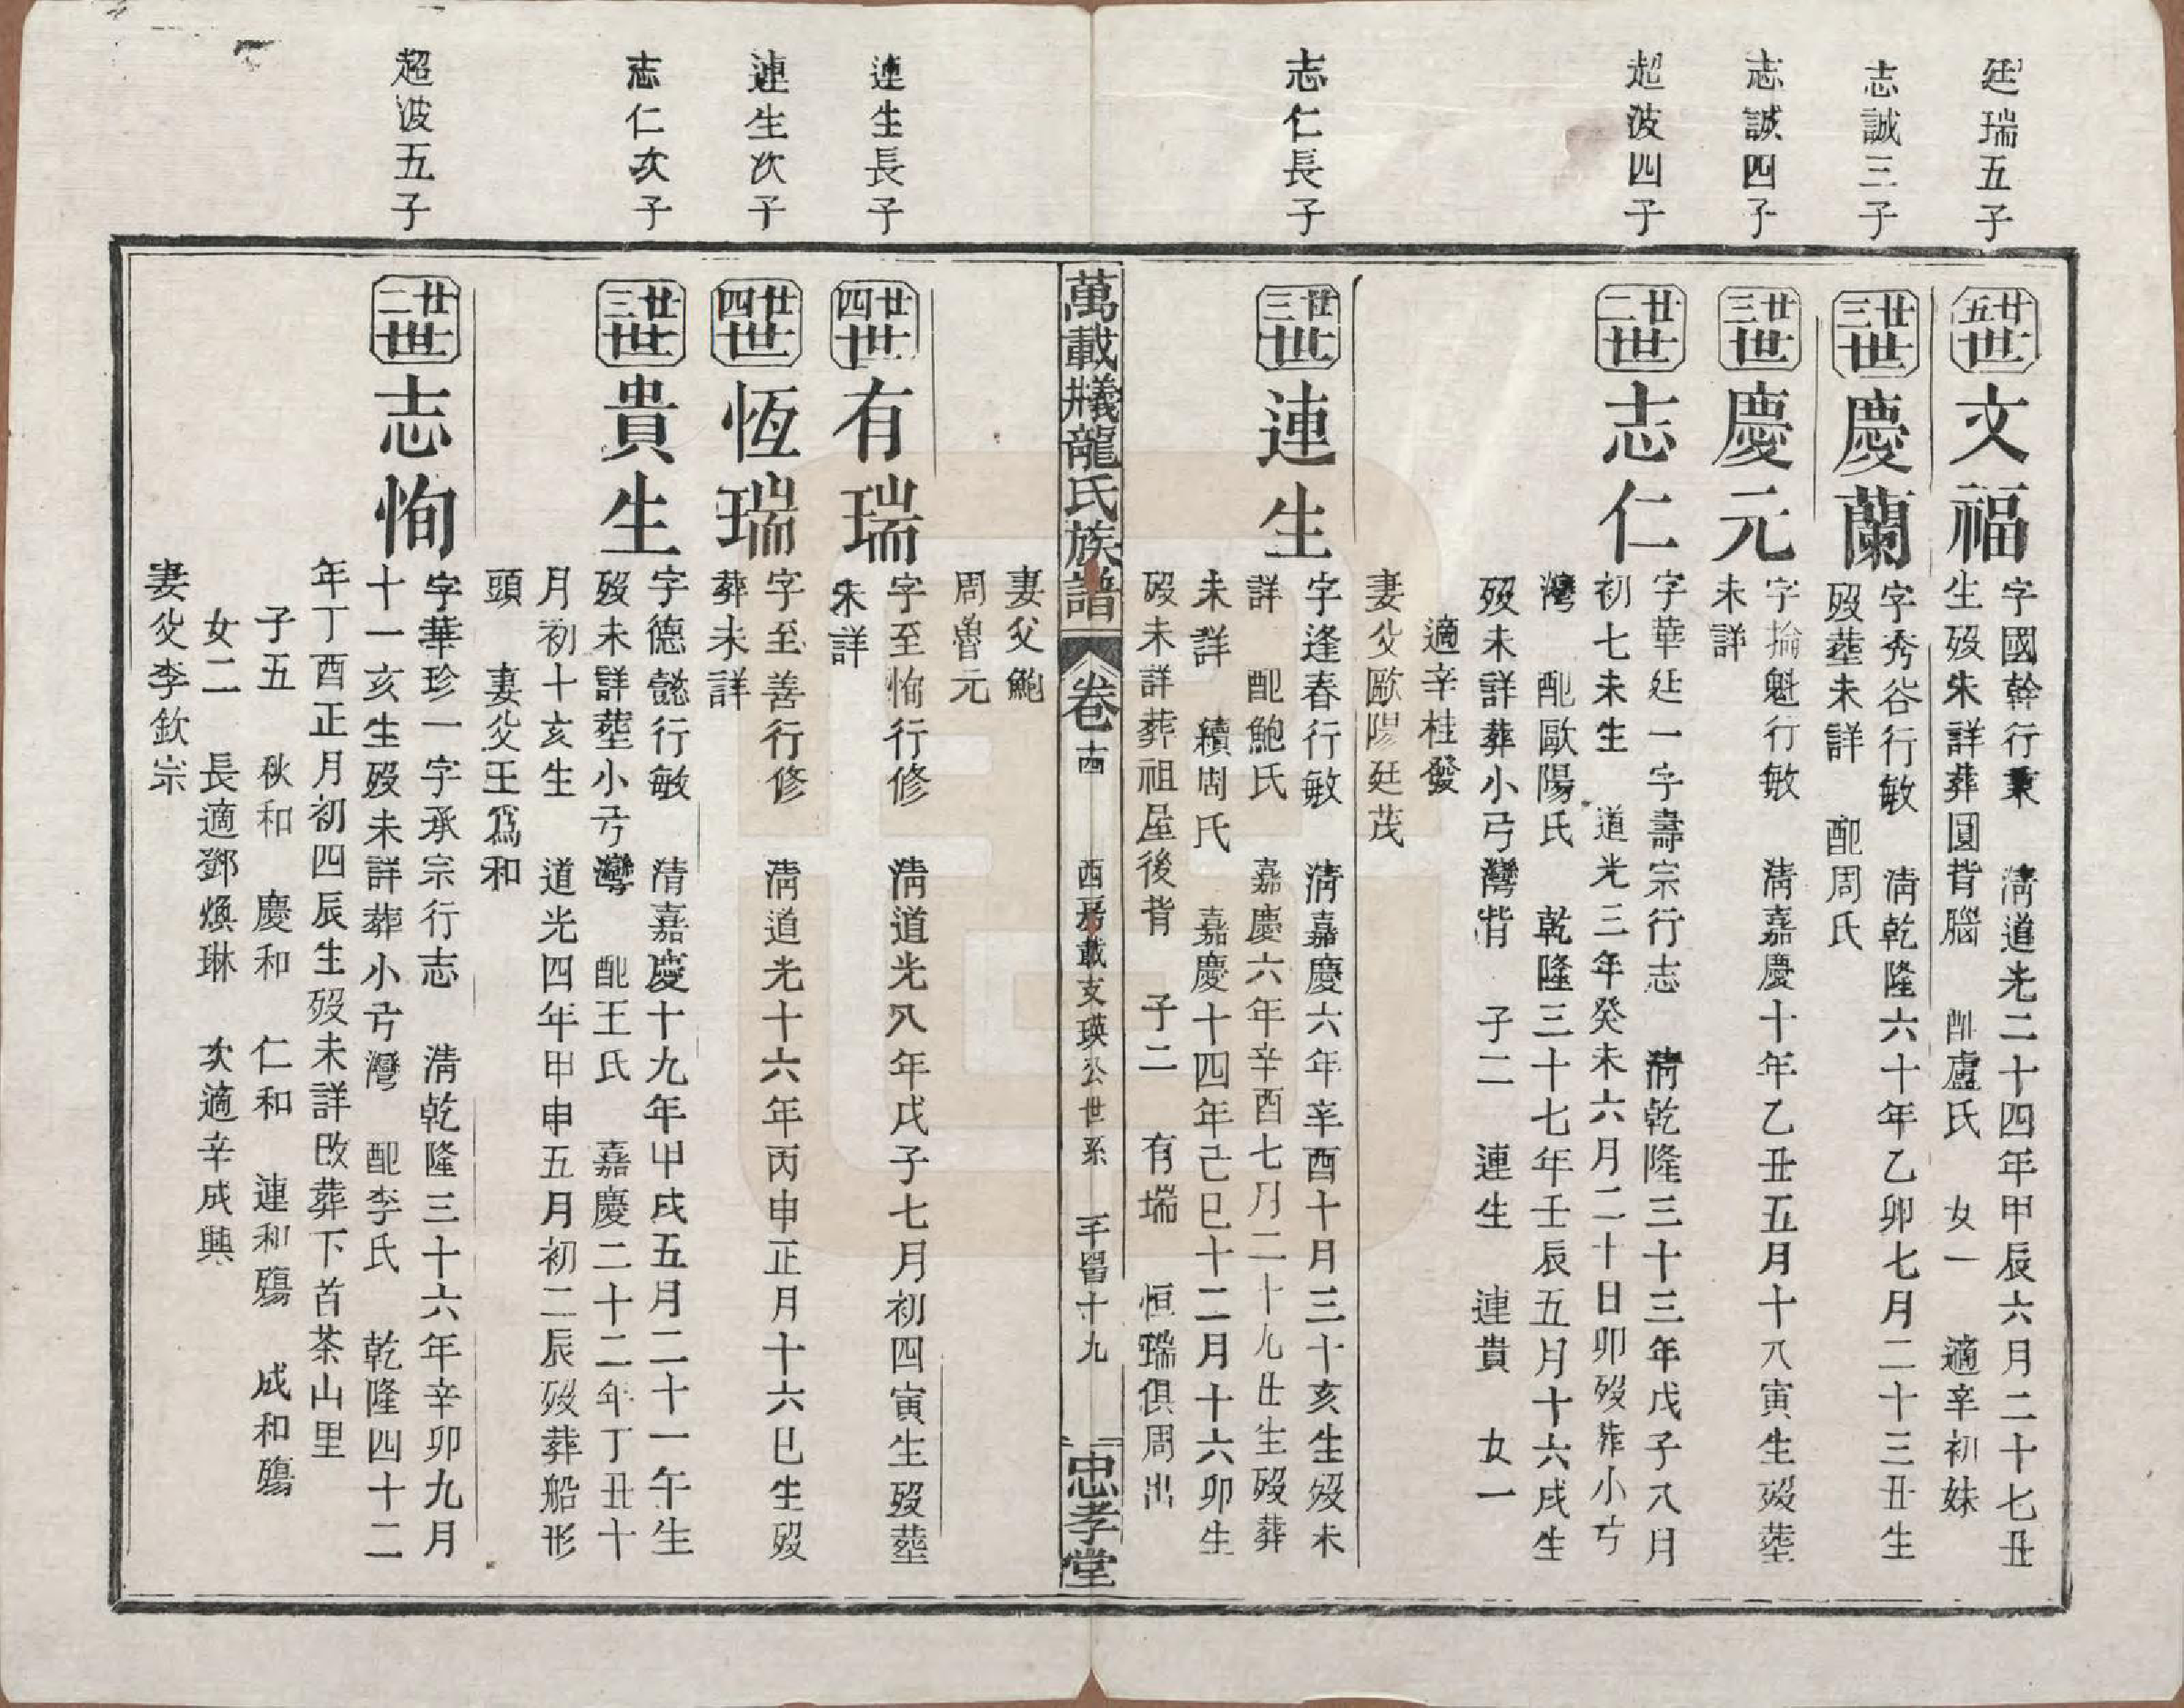 廷瑞五子
廿五世
文福
字國幹行秉　清道光二十四年甲辰六月二十七丑
生歿未詳葬園背腦　配盧氏　女一　適辛初妹
志誠三子
廿三世
慶蘭
字秀谷行敏　清乾隆六十年乙卯七月二十三丑生
歿塟未詳　配周氏
志誠四子
廿三世
慶元
字掄魁行敏　清嘉慶十年乙丑五月十八寅生歿塟
未詳
超波四子
廿二世
志仁
字華廷一字壽宗行志　清乾隆三十三年戊子八月
初七未生　道光三年癸未六月二十日卯歿葬小弓
灣　配歐陽氏　乾隆三十七年壬辰五月十六戌生
歿未詳葬小弓灣背　子二　連生　連貴　女一
適辛桂發
妻父歐陽廷茂
志仁長子
廿三世
連生
字逢春行敏　清嘉慶六年辛酉十月三十亥生歿未
詳　配鮑氏　嘉慶六年辛酉七月二十九丑生歿葬
未詳　續周氏　嘉慶十四年己巳十二月十六卯生
歿未詳葬祖屋後背　子二　有瑞　恒瑞俱周出
萬載㸁龍氏族譜
卷十四　西房載支瑛公世系　平畱十九
忠孝堂
妻父鮑
周魯元
連生長子
廿四世
有瑞
字至恂行修　清道光八年戊子七月初四寅生歿塟
未詳
連生次子
廿四世
恆瑞
字至善行修　清道光十六年丙申正月十六巳生歿
葬未詳
志仁次子
廿三世
貴生
字德懿行敏　清嘉慶十九年甲戌五月二十一午生
歿未詳塟小弓灣　配王氏　嘉慶二十二年丁丑十
月初十亥生　道光四年甲申五月初二辰歿葬船形
頭　妻父王爲和
超波五子
廿二世
志恂
字華珍一字承宗行志　清乾隆三十六年辛卯九月
十一亥生歿未詳葬小弓灣　配李氏　乾隆四十二
年丁酉正月初四辰生歿未詳改葬下首茶山里
子五　秋和　慶和　仁和　連和殤　成和殤
女二　長適鄧煥琳　次適辛成興
妻父李欽崇